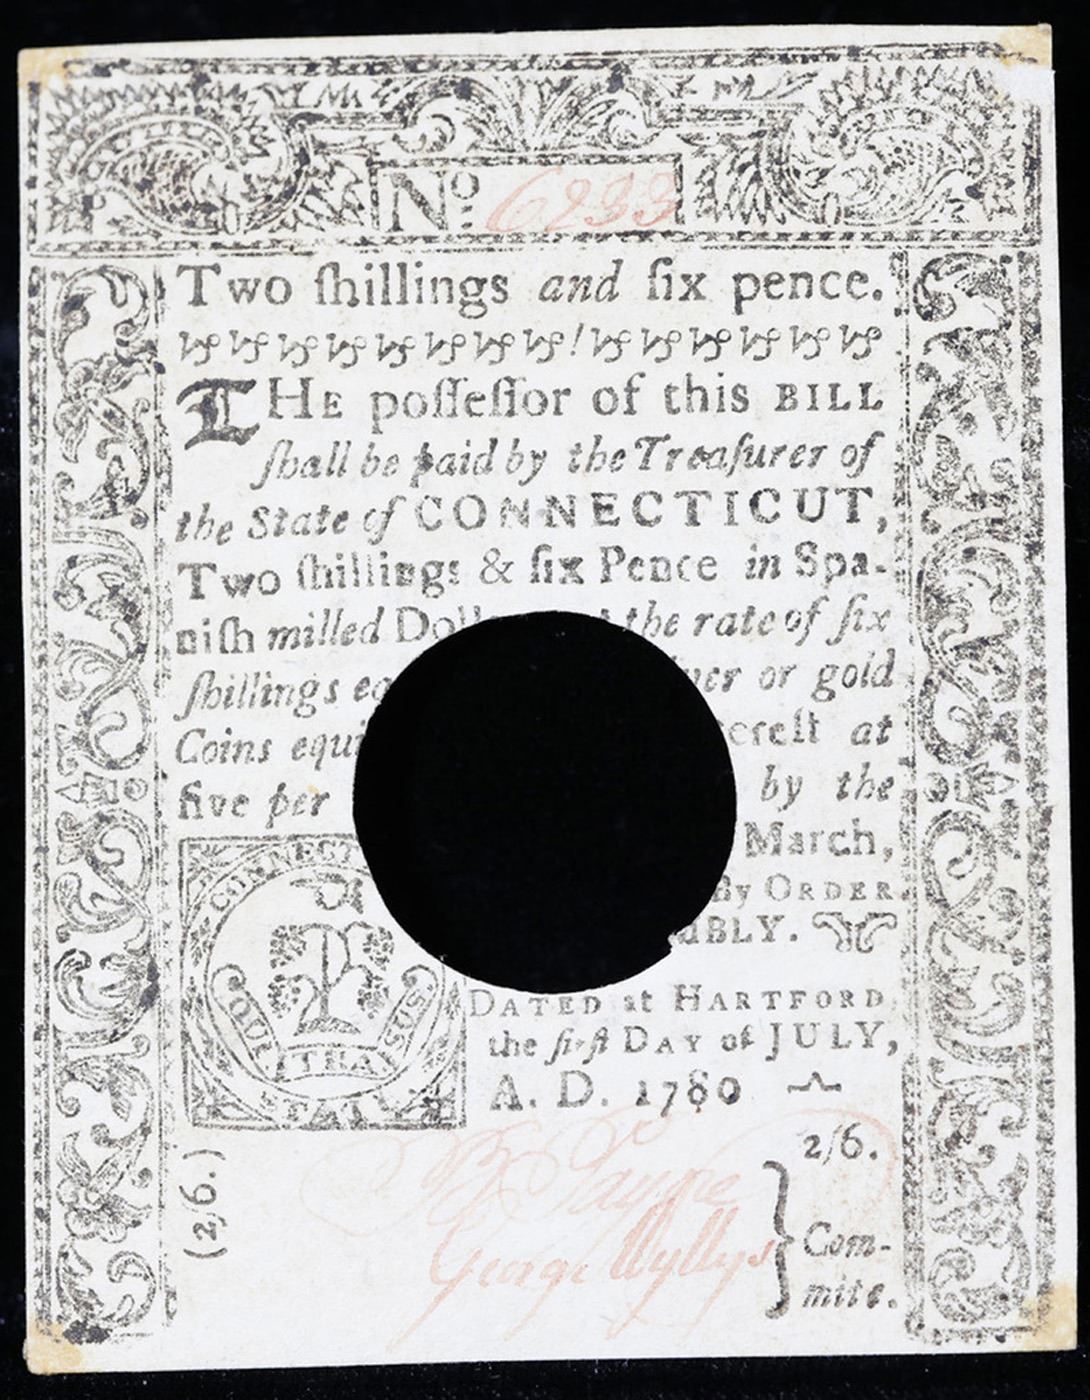 No. 6233
Two ſhillings and ſix pence.
THE poſſeſſor of this BILL
ſhall be paid by the Treaſurer of
the State of CONNECTICUT,
Two ſhillings & ſix Pence in Spa-
niſh milled the rate of ſix
ſhillings or gold
Coins at
five per by the
March,
By ORDER
DATED at HARTFORD
the firſt DAY of JULY,
A. D. 1780
QUI TRA SUS
2/6.
(2/6.)
George Wyllys
Com-
mite.